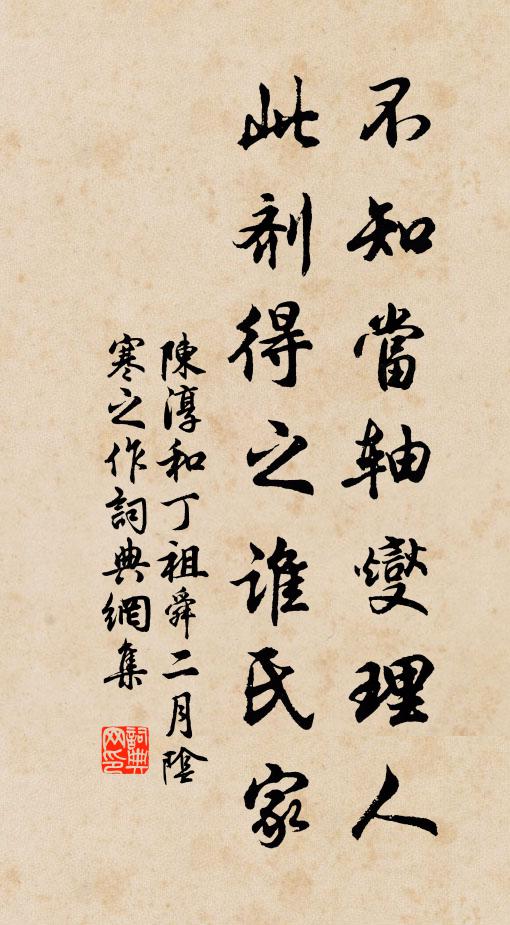 不知當軸燮理人
此劑得之誰氏家
陳淳和丁祖舜二月陰
寒之作詞典網集
詞典
网印